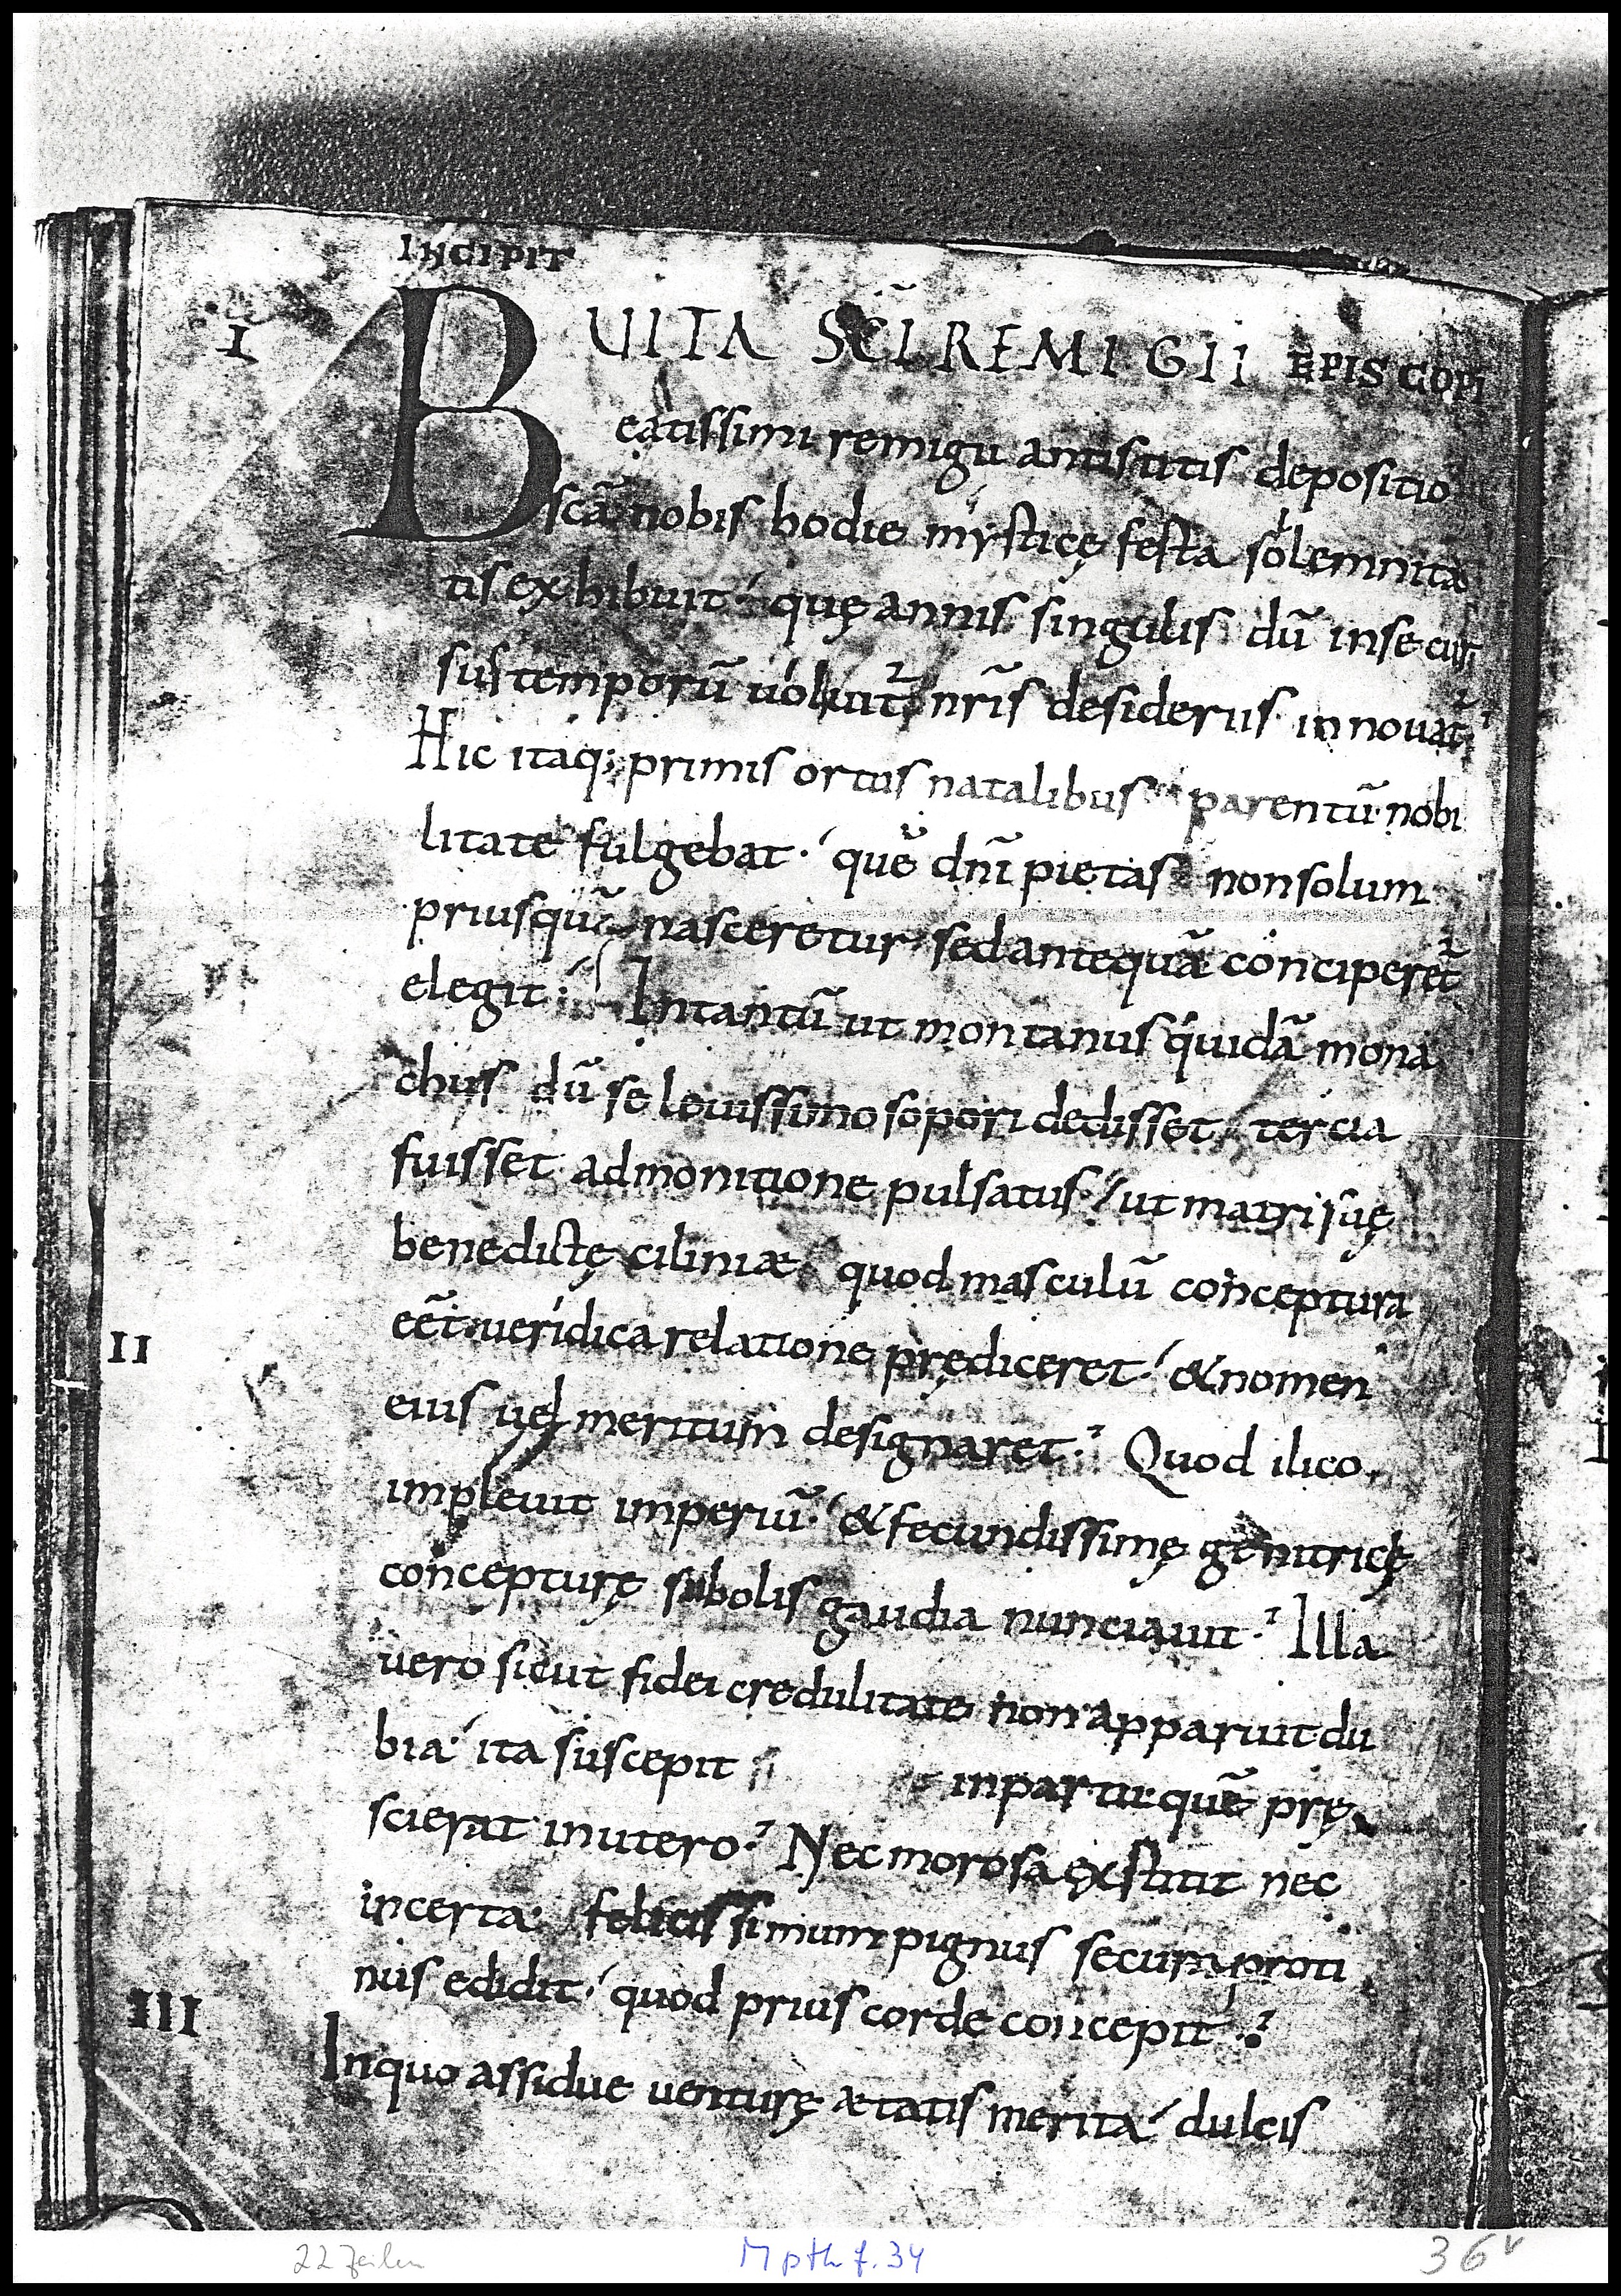 INCIPIT
I
UITA SC̄I REMIGII EPISCOPI
Beatissimi remigii antistitis depositio
sc̄a nobis hodie mysticę festa solemnita
tis exhibuit· quę annis singulis dū in se cur
sus temporū uoluit᷑ nr̄is desideriis innouat᷑
Hic itaq; primis ortus natalibus parentū nobi
litate fulgebat· quē dn̄i pietas non solum
priusquā nasceretur· sed antequā conciperet᷑
elegit· Intantū ut montanus quidā mona
chus dū se leuissimo sopori dedisset, tercia
fuisset admonitione pulsatus· ut matri suę
benedictę ciliniæ quod masculū conceptura
II
eēt ueridica relatione prędiceret· & nomen
eius uel meritum designaret· Quod ilico
impleuit imperiū· & fecundissimę genitricę
concepturę subolis gaudia nunciauit· Illa
uero sicut fidei credulitate non apparuit du
bia· ita suscepit in partu quē prę
scierat in utero· Nec morosa exstitit nec
incerta· felicissimum pignus secum proti
nus edidit· quod prius corde concepit·
III
In quo assidue uenturę ætatis merita· dulcis
22 Zeilen
M pth f. 34
36v